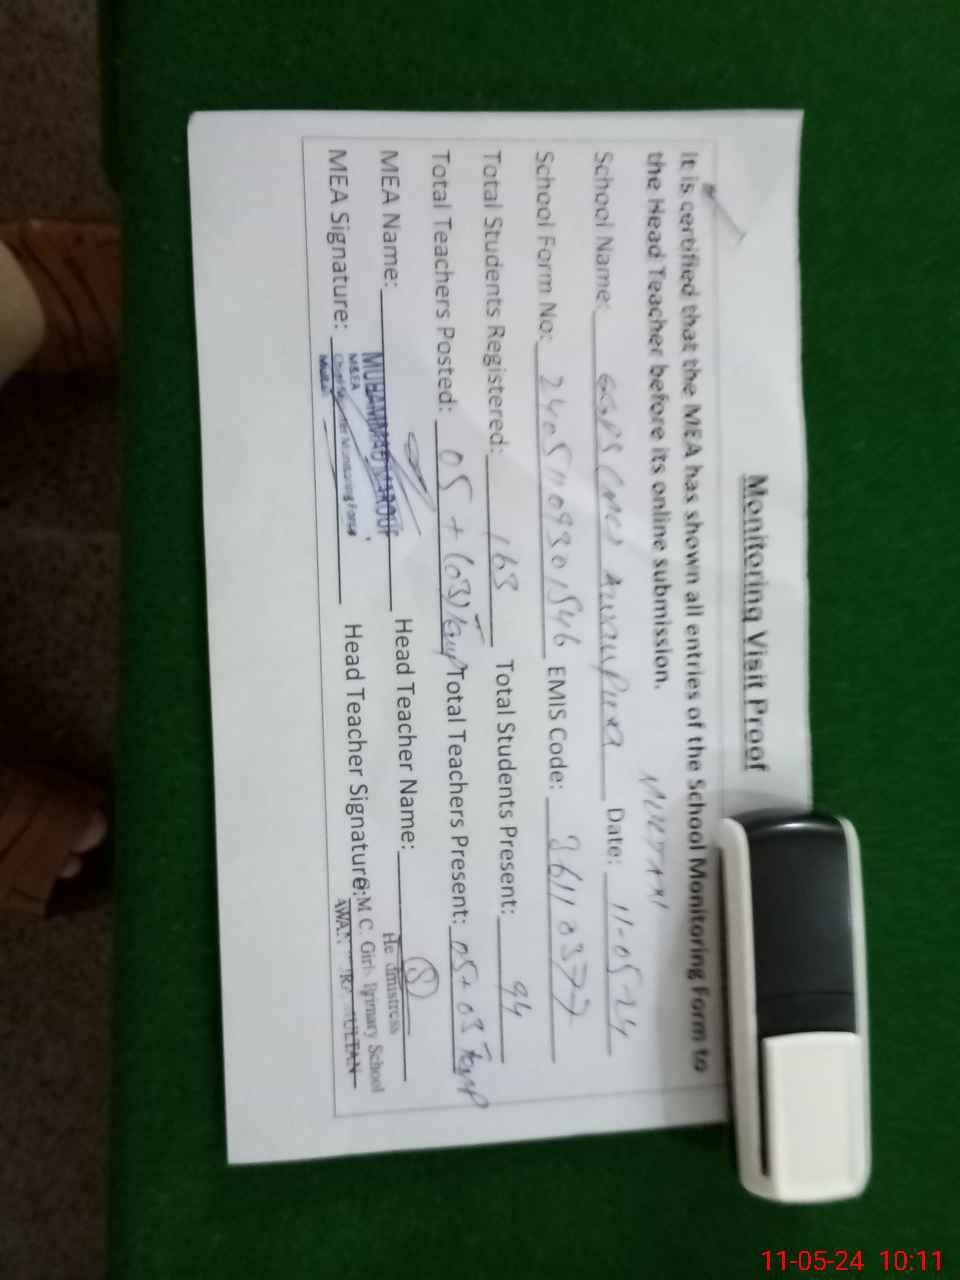 Monitoring Visit Proof
It is certified that the MEA has shown all entries of the School Monitoring Form to
the Head Teacher before its online submission.
MULTAN
School Name: GGPS (MC) Awanpura Date: 11-05-24
School Form No: EMIS Code: 36110377
Total Students Registered: 163 Total Students Present: 94
Total Teachers Posted: 05 + (03) Temp Total Teachers Present: 05 + 03 Temp
MEA Name: MUHAMMAD MAROUF Head Teacher Name:
MEA Signature: M&EA Head Teacher Signature:
Monitoring Force
Multan
Headmistress
M.C. Girls Primary School
MULTAN
11-05-24 10:11